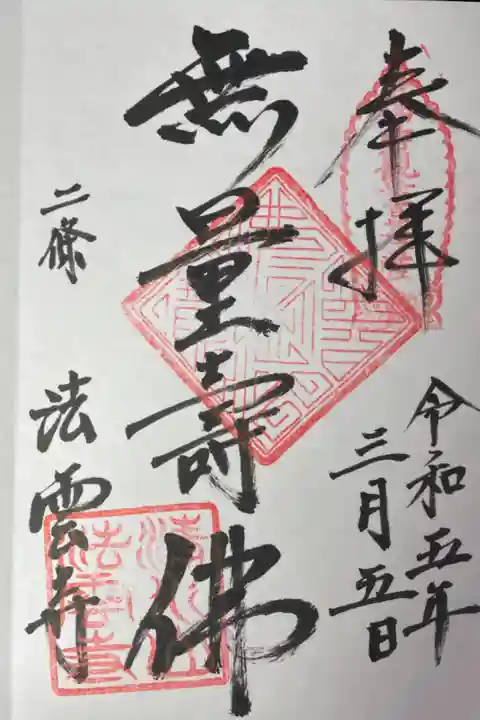 奉拝
令和五年
三月五日
無量壽佛
二條
法雲寺